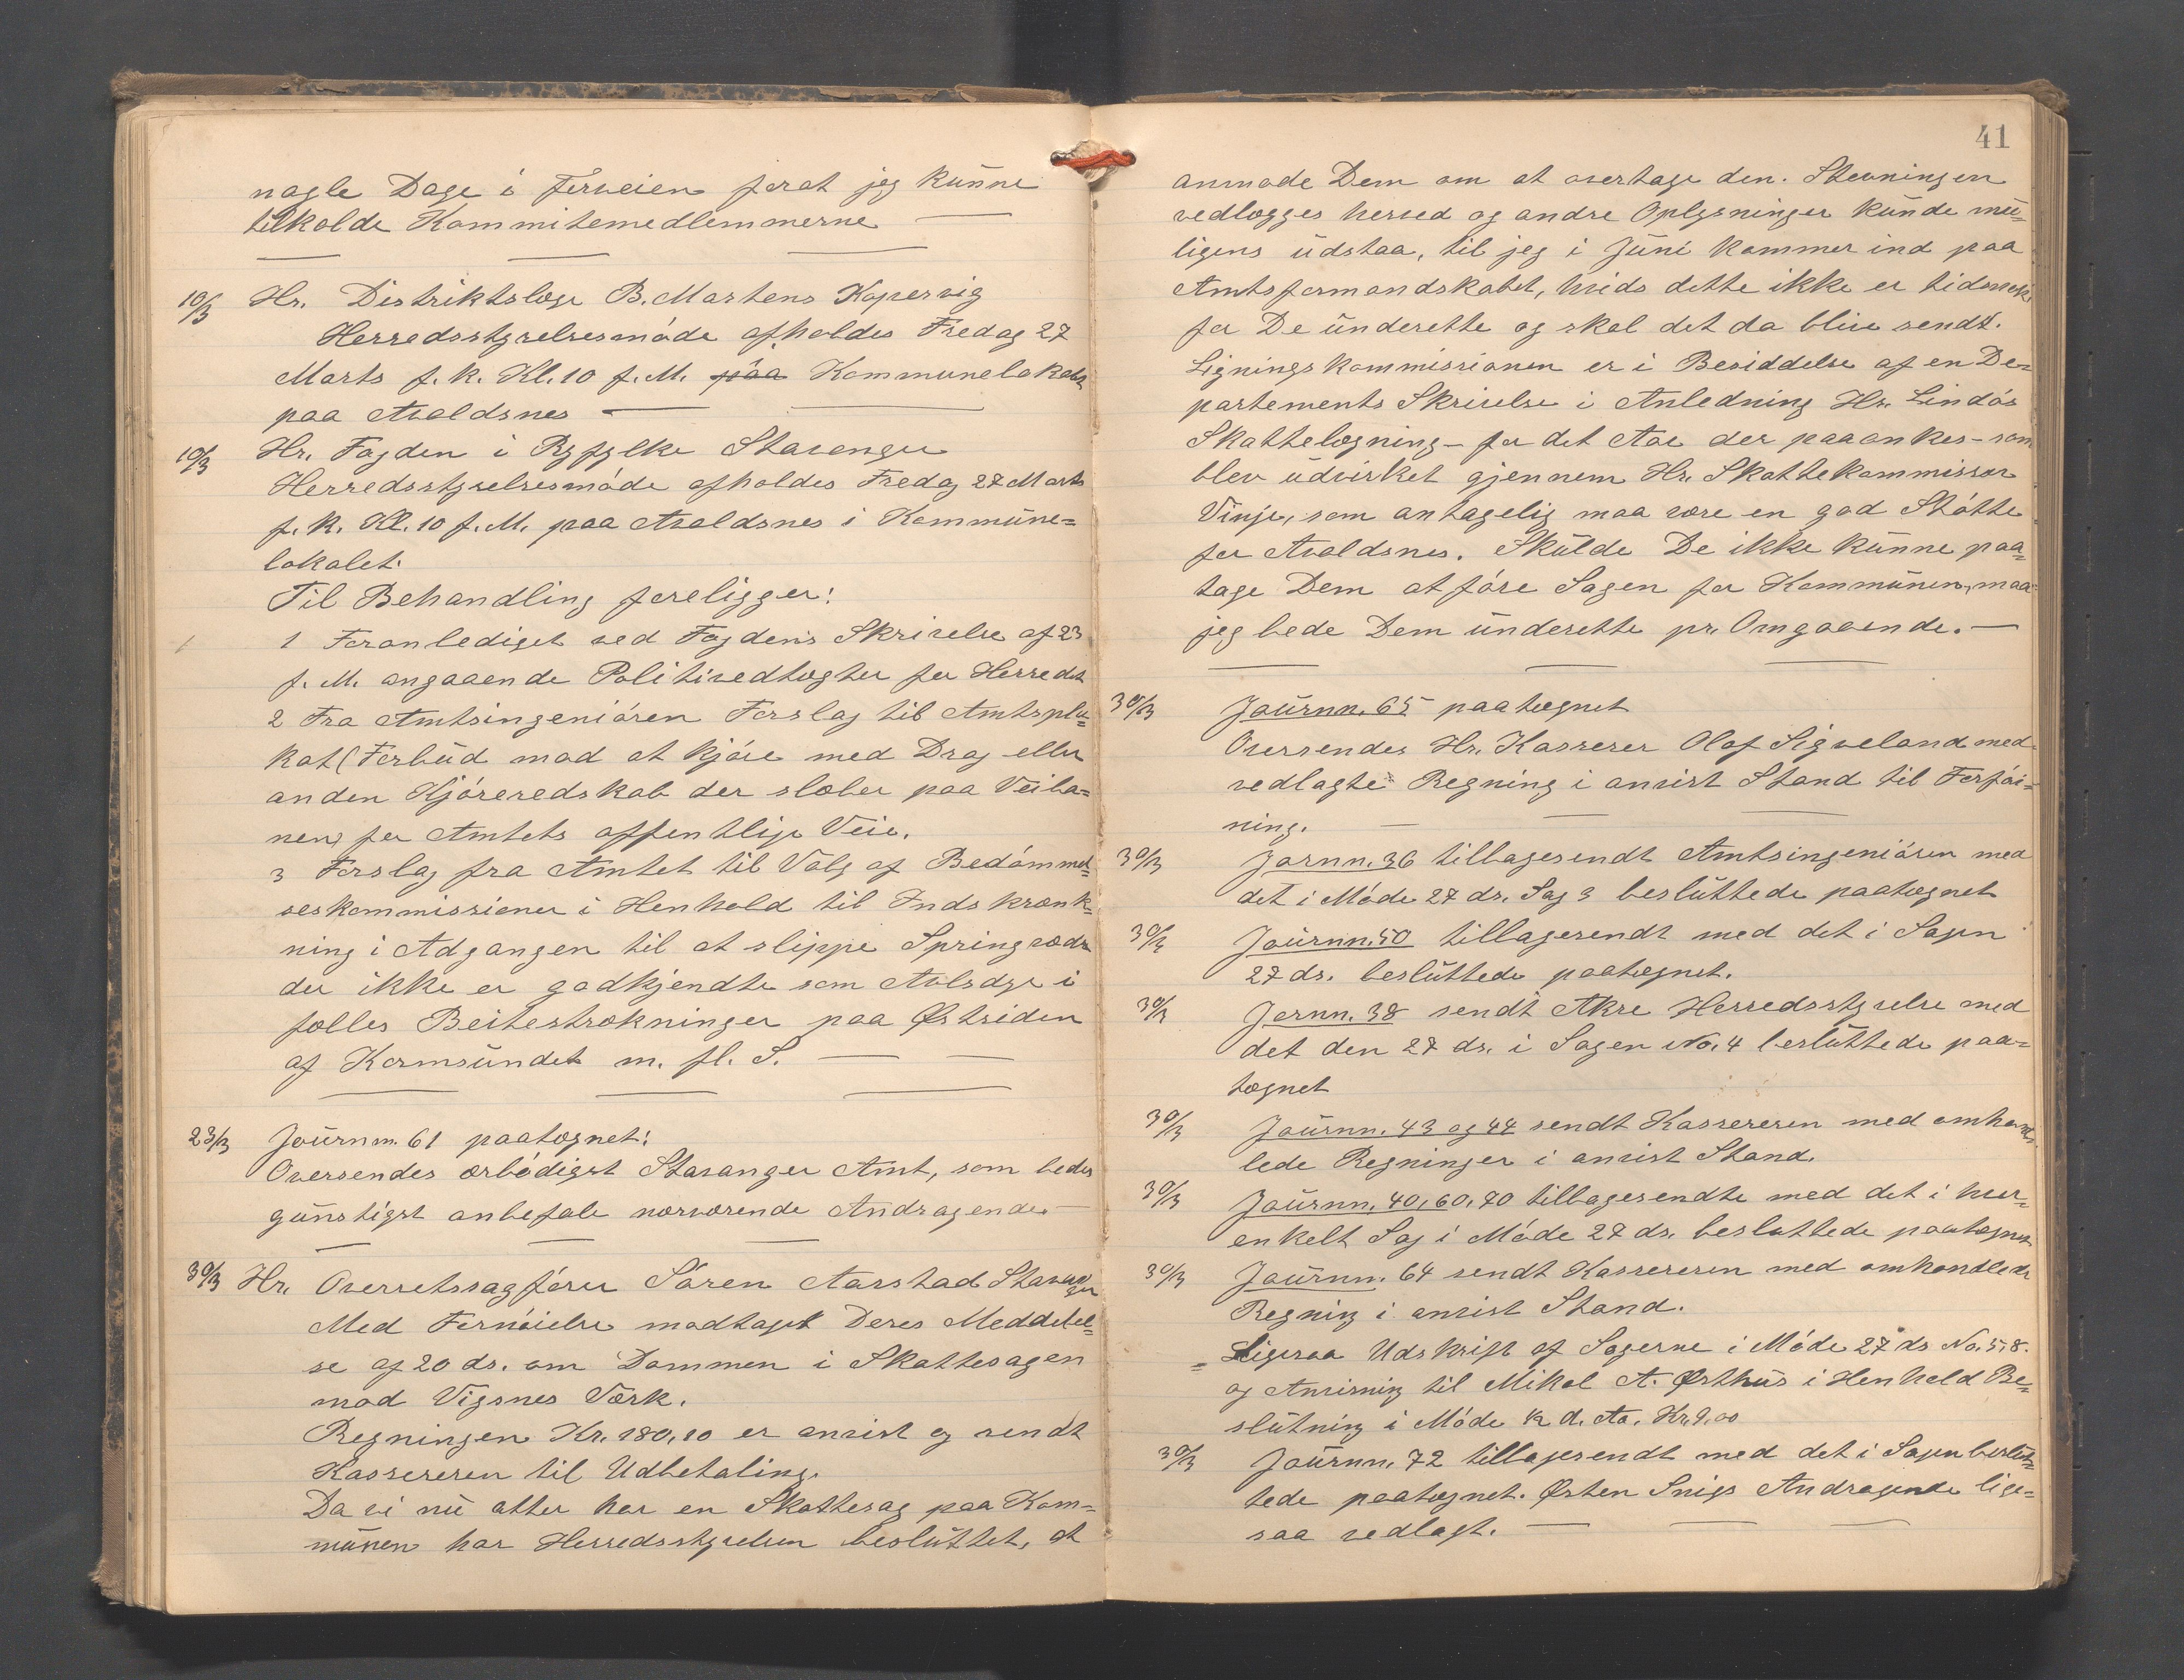 nogle Dage i Forveien forat jeg kunne
tilkolde Kommitemedlemmerne
10/3 Hr. Distriktslæge B. Martens Kopervig
Herredsstyrelsesmöde afholdes Fredag 27
Marts f. k. Kl. 10 f. M. paa Kommunelokalet
paa Avaldsnes
10/3 Hr. Fogden i Ryfylke Stavanger
Herredsstyrelsesmöde afholdes Fredag 27 Marts
f. k. Kl. 10 f. M. paa Avaldsnes i Kommune=
lokalet.
Til Behandling foreligger:
1 Foranlediget ved Fogdens Skrivelse af 23
f. M. angaaende Politivedtægter for Herredet
2 Fra Amtsingeniören Forslag til Amtspla=
kat (Forbud mod at kjöre med Drag eller
anden Kjöreredskab der slæber paa Veiba=
nen) for Amtets offentlige Veie.
3 Forslag fra Amtet til Valg af Bedömmel=
seskommissioner i Henhold til Indskrænk=
ning i Adgangen til at slippe Springvædre
der ikke er godkjendte som Avlsdyr i
fælles Beitestrækninger paa Østsiden
af Karmsundet m. fl. S.
23/3 Journn. 61 paategnet:
Oversendes ærbödigst Stavanger Amt, som bedes
gunstigst anbefale nærværende Andragende
30/3 Hr. Overretssagförer Sören Aarstad Stavanger
Med Fornöielse modtaget Deres Meddelel=
se af 20 ds. om Dommen i Skattesagen
mod Vigsnes Værk.
Regningen Kr. 180,10 er anvist og sendt
Kassereren til Udbetaling.
Da vi nu atter har en Skattesag paa Kom=
munen har Herredsstyrelsen besluttet, at
41
anmode Dem om at overtage den. Stevningen
vedlægges herved og andre Oplysninger kunde mu=
ligens udstaa, til jeg i Juni kommer ind paa
Amtsformandskabet, hvids dette ikke er tidsnok
for De underette og skal det da blive sendt.
Ligningskommissionen er i Besiddelse af en De=
partements Skrivelse i Anledning Hr. Lindös
Skattelægning - for det Aar der paaankes - som
blev udvirket gjennem Hr. Skattekommissær
Vinje, som antagelig maa være en god Stötte
for Avaldsnes. Skulde De ikke kunne paa=
tage Dem at före Sagen for Kommunen, maa
jeg bede Dem underette pr. Omgaaende. —
30/3 Journn. 65 paategnet
Oversendes Hr. Kasserer Olaf Sigveland med
vedlagte Regning i anvist Stand til Forföi=
ning.
30/3 Jornn. 36 tilbagesendt Amtsingeniören med
det i Möde 27 ds. Sag 3 besluttede paategnet
30/3 Journn. 50 tilbagesendt med det i Sagen
27 ds. besluttede paategnet.
30/3 Jornn. 38 sendt Akre Herredsstyrelse med
det den 27 ds. i Sagen No. 4 besluttede paa=
tegnet
30/3 Journn. 43 og 44 sendt Kassereren med omhand=
lede Regninger i anvist Stand.
30/3 Journn. 40, 60, 70 tilbagesendte med det i hver
enkelt Sag i Möde 27 ds. besluttede paategnet
30/3 Journn. 64 sendt Kassereren med omhandlede
Regning i anvist Stand.
= Ligesaa Udskrift af Sagerne i Möde 27 ds No. 5, 8.
og Anvisning til Mikal A. Østhus i Henhold Be=
slutning i Möde d. Aa. Kr. 9,00
30/3 Journn. 72 tilbagesendt med det i Sagen beslut=
tede paategnet. Østen Snigs Andragende lige=
saa vedlagt.